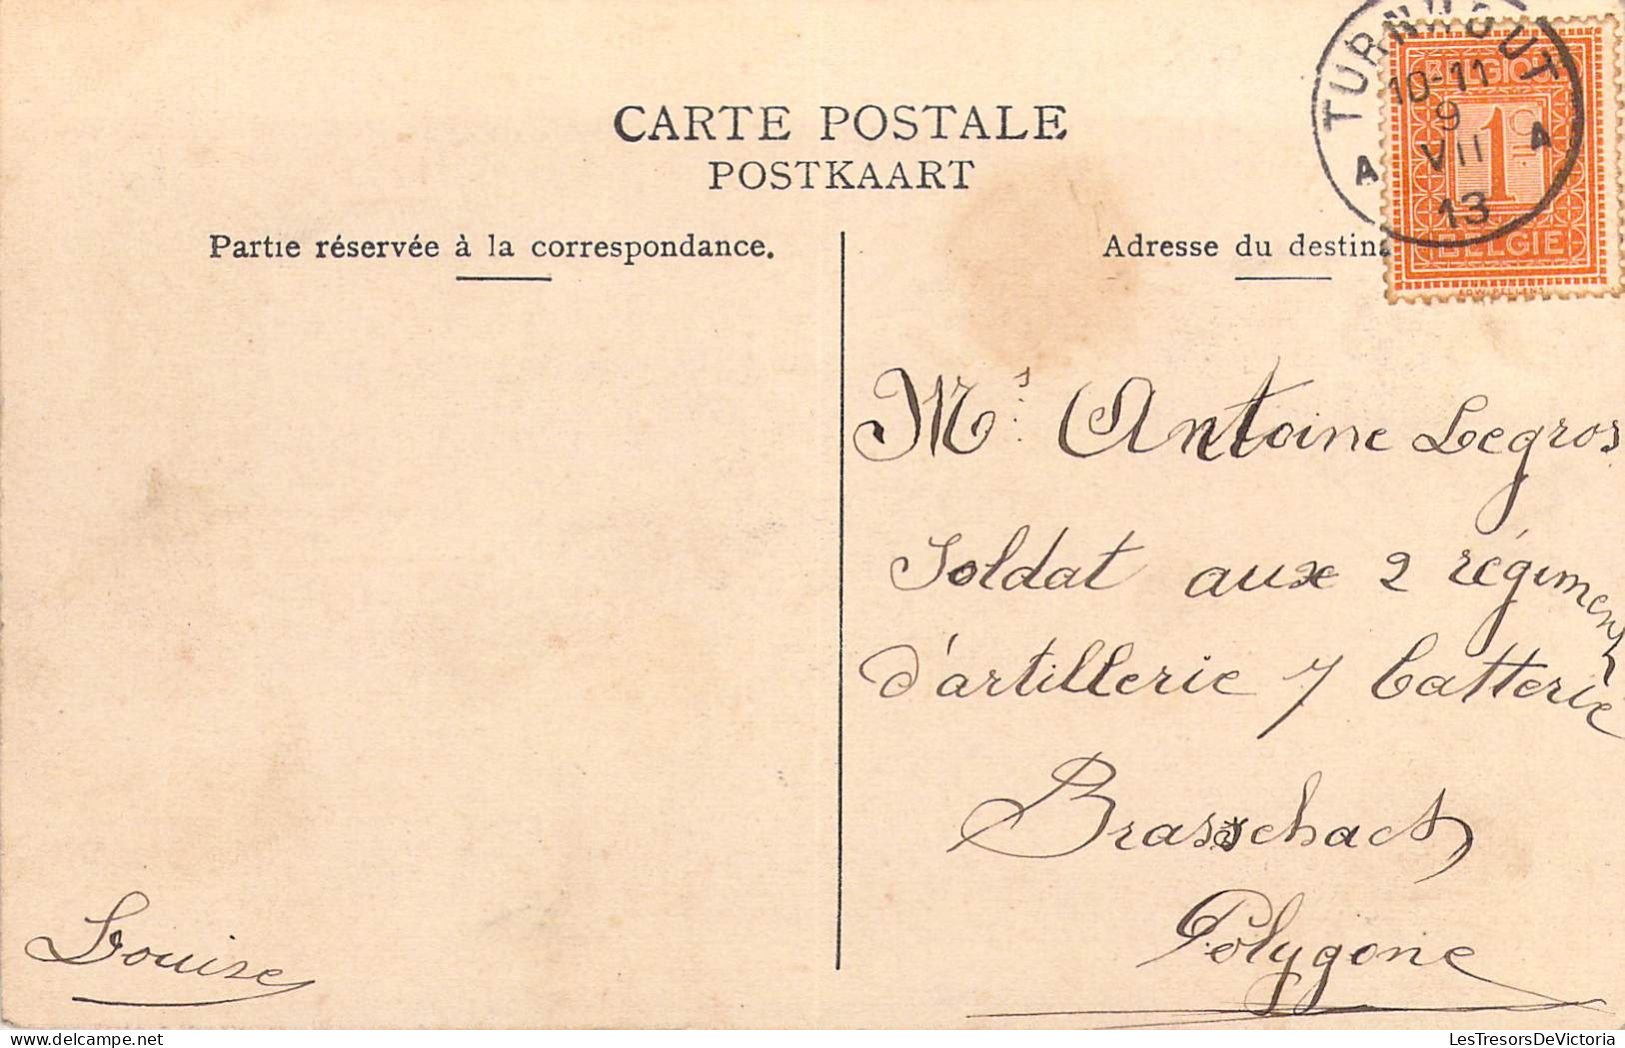 CARTE POSTALE
POSTKAART
Partie réservée à la correspondance.
Adresse du destina
TURNHOUT
10-11
9
VII
13
A A
BELGIQUE
1
BELGIE
Mr. Antoine Legros
Soldat aux 2 régiment
d'artillerie 7 batterie
Brasschaet
Polygone
Louise
LesTresorsDeVictoria